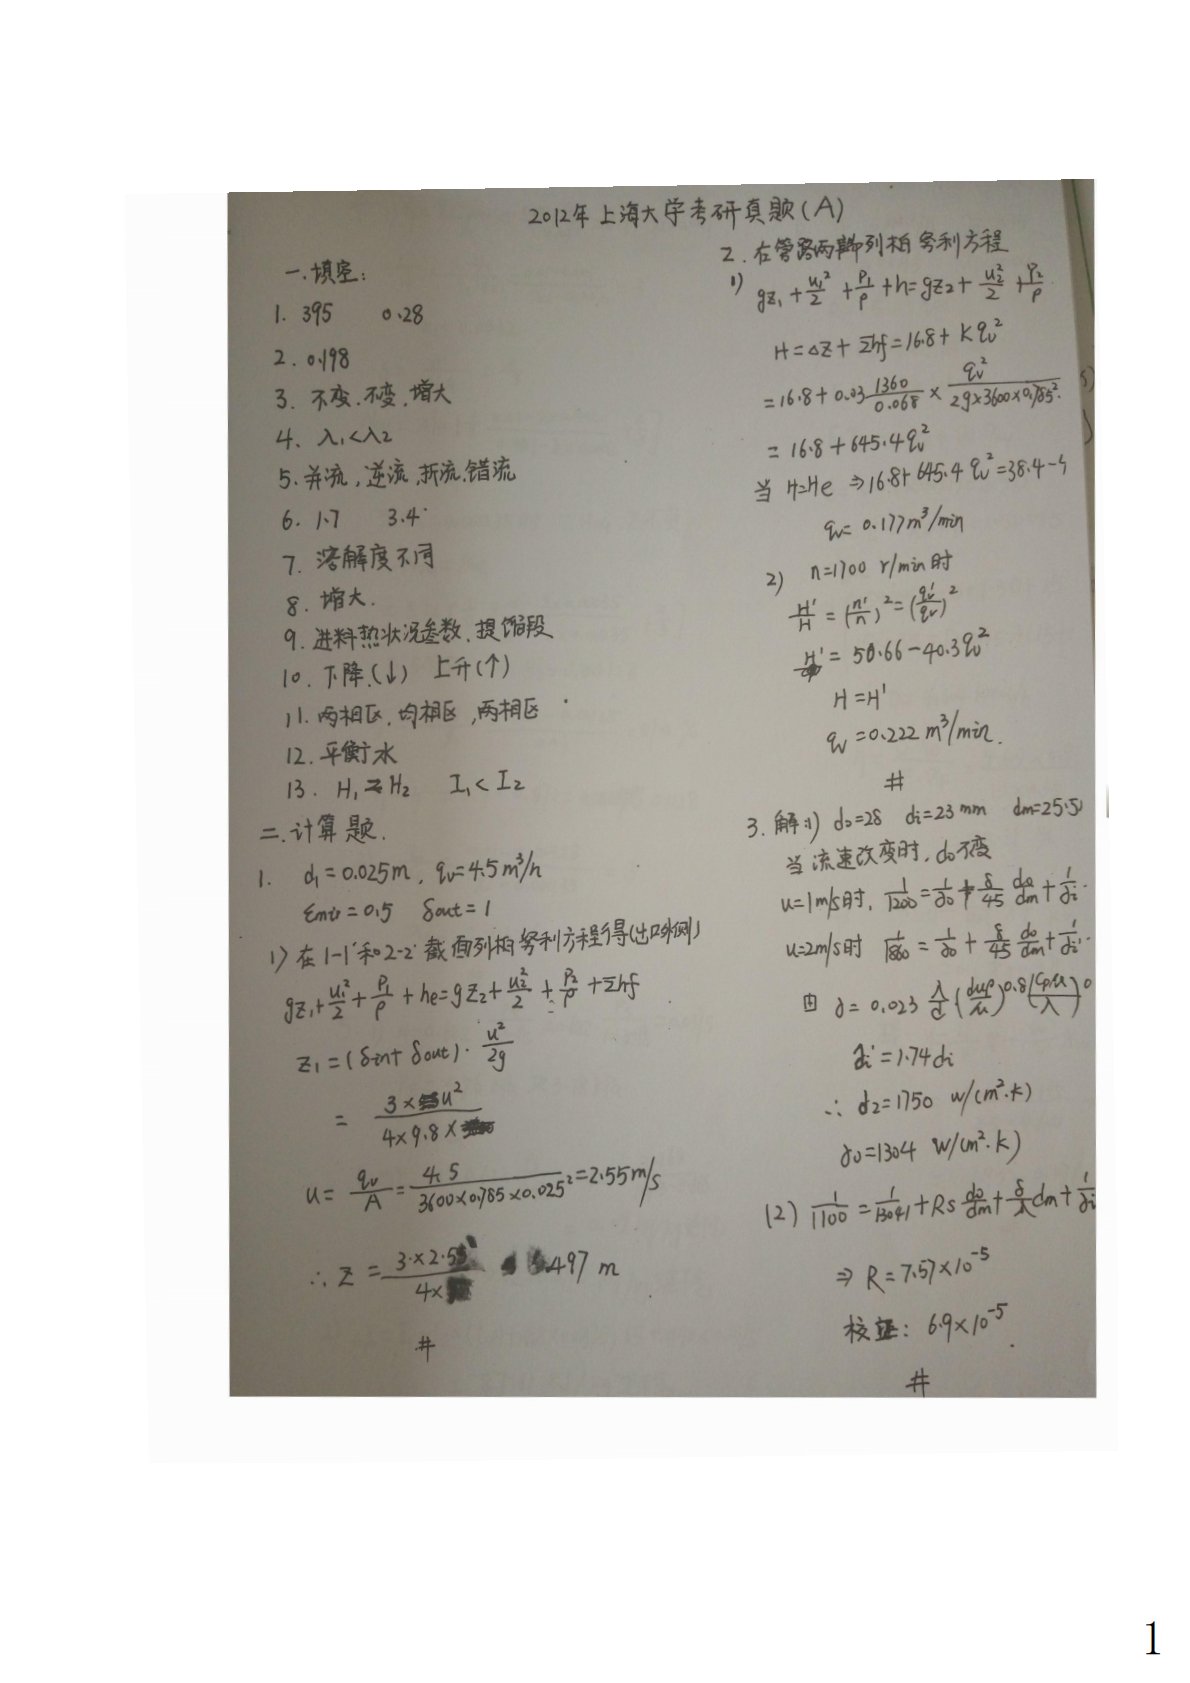 2012年上海大学考研真题(A)
一.填空:
1. 395 0.28
2. 0.198
3. 不变.不变.增大
4. λ₁<λ₂
5. 并流,逆流,折流.错流
6. 1.7 3.4
7. 溶解度不同
8. 增大.
9. 进料热状况参数.提馏段
10. 下降.(↓) 上升(↑)
11. 两相区,均相区,两相区
12. 平衡水
13. H₁ H₂ I₁<I₂
二.计算题.
1. d₁=0.025m, qv=4.5m³/h
=0.5 δout=1
1) 在1-1'和2-2'截面列柏努利方程得(出口外侧)
gz₁+u₁²/2+P₁/ρ+he=gz₂+u₂²/2+P₂/ρ+Σhf
z₁=(δin+δout)·u²/2g
= 3×u²/4×9.8×
u=qv/A=4.5/3600×0.785×0.025²=2.55m/s
∴z=3×2.5/4× 497 m
#
2. 在管路两端列柏努利方程
1) gz₁+u₁²/2+P₁/ρ+h=gz₂+u₂²/2+P₂/ρ
H=ΔZ+Σhf=16.8+Kqv²
=16.8+0.03 1360/0.068×qv²/2g×3600×0.785².
=16.8+645.4qv²
当 H=He ⇒16.8+645.4qv²=38.4-
qv=0.177m³/min
2) n=1700 r/min时
H'/H=(n'/n)²=(qv'/qv)²
H'=50.66-40.3qv²
H=H'
qv=0.222 m³/min.
#
3. 解:1) do=28 di=23mm dm=25.5
当流速改变时,do不变
u=1m/s时, 1/1200=1/∂o+δ/45 do/dm+1/∂i
u=2m/s时 1/1860=1/∂o+δ/45 do/dm+1/∂i'
由 ∂=0.023 λ/d (duρ/μ)^0.8(Cpμ/λ)^0
∂i'=1.74∂i
∴ ∂2=1750 W/(m²·K)
∂o=1304 W/(m²·K)
(2) 1/1100=1/13041+Rs do/dm+δ/λ dm+1/∂i
⇒ R=7.57×10⁻⁵
校正: 6.9×10⁻⁵.
#
1